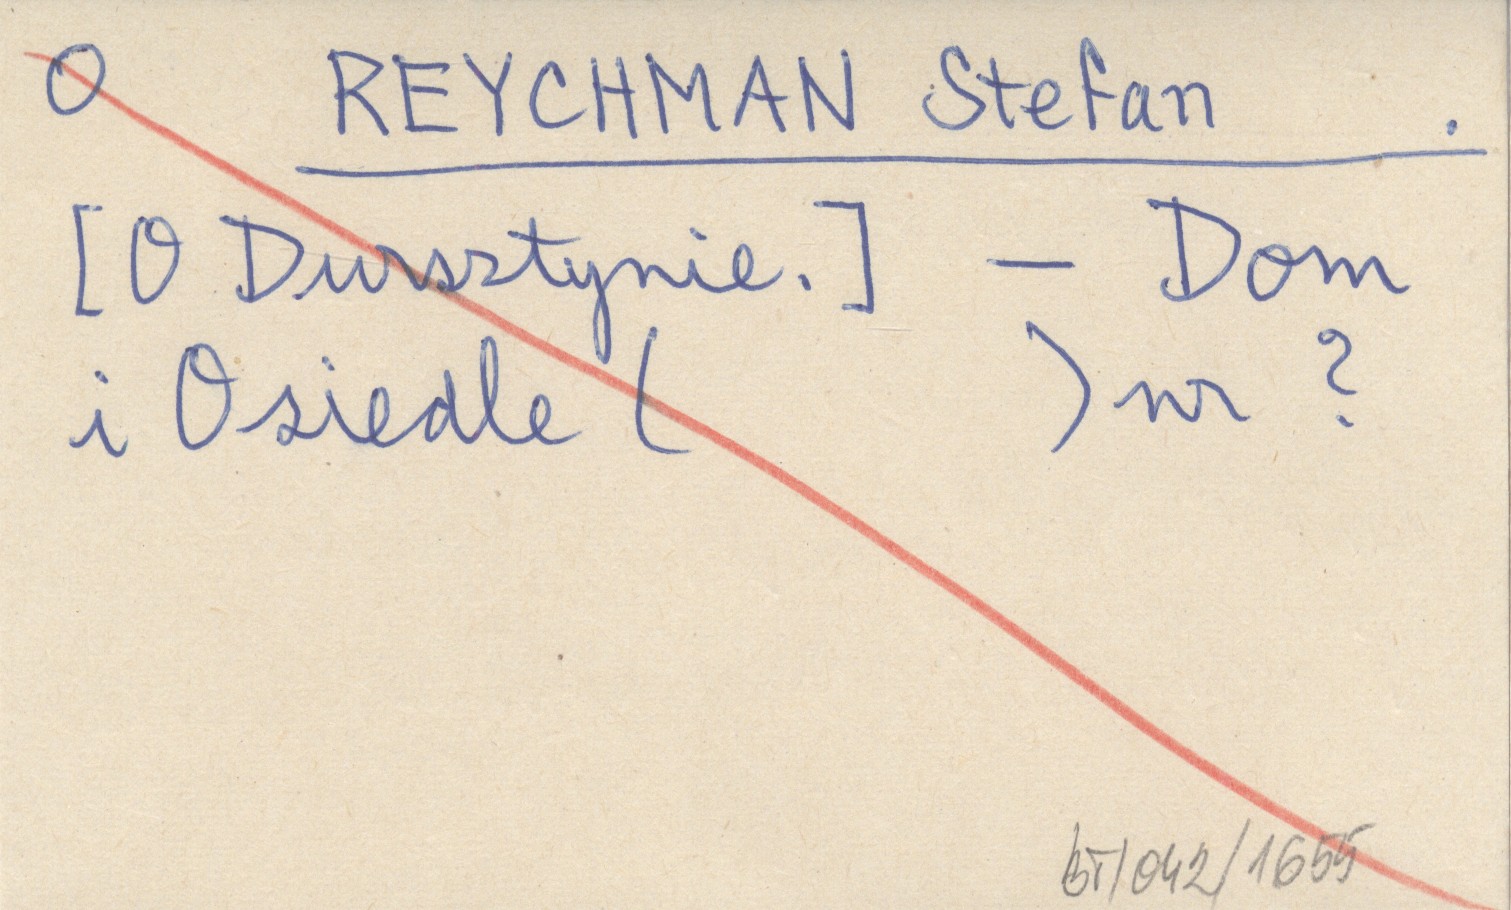 O REYCHMAN Stefan .
[O Dursztynie.] — Dom
i Osiedle ( ) nr ?
bT/042/1655